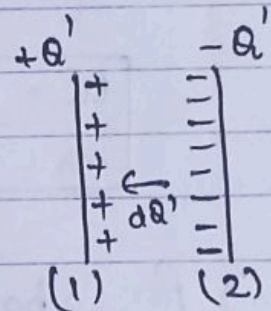 +Q' -Q'
+ -
+ -
+ -
+ ← -
dQ'
+ -
(1) (2)